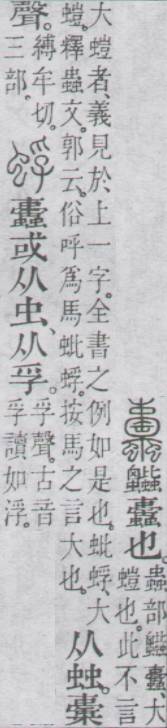 也。蟲部大
螘也。此不言
大螘者、義見於上一字。全書之例如是也。蚍蜉、大
螘。釋蟲文。郭云。俗呼爲馬蚍蜉。按馬之言大也。
从䖵。
聲。
縛牟切。
三部。
或从虫、从孚。
孚聲。古音
孚讀如浮。